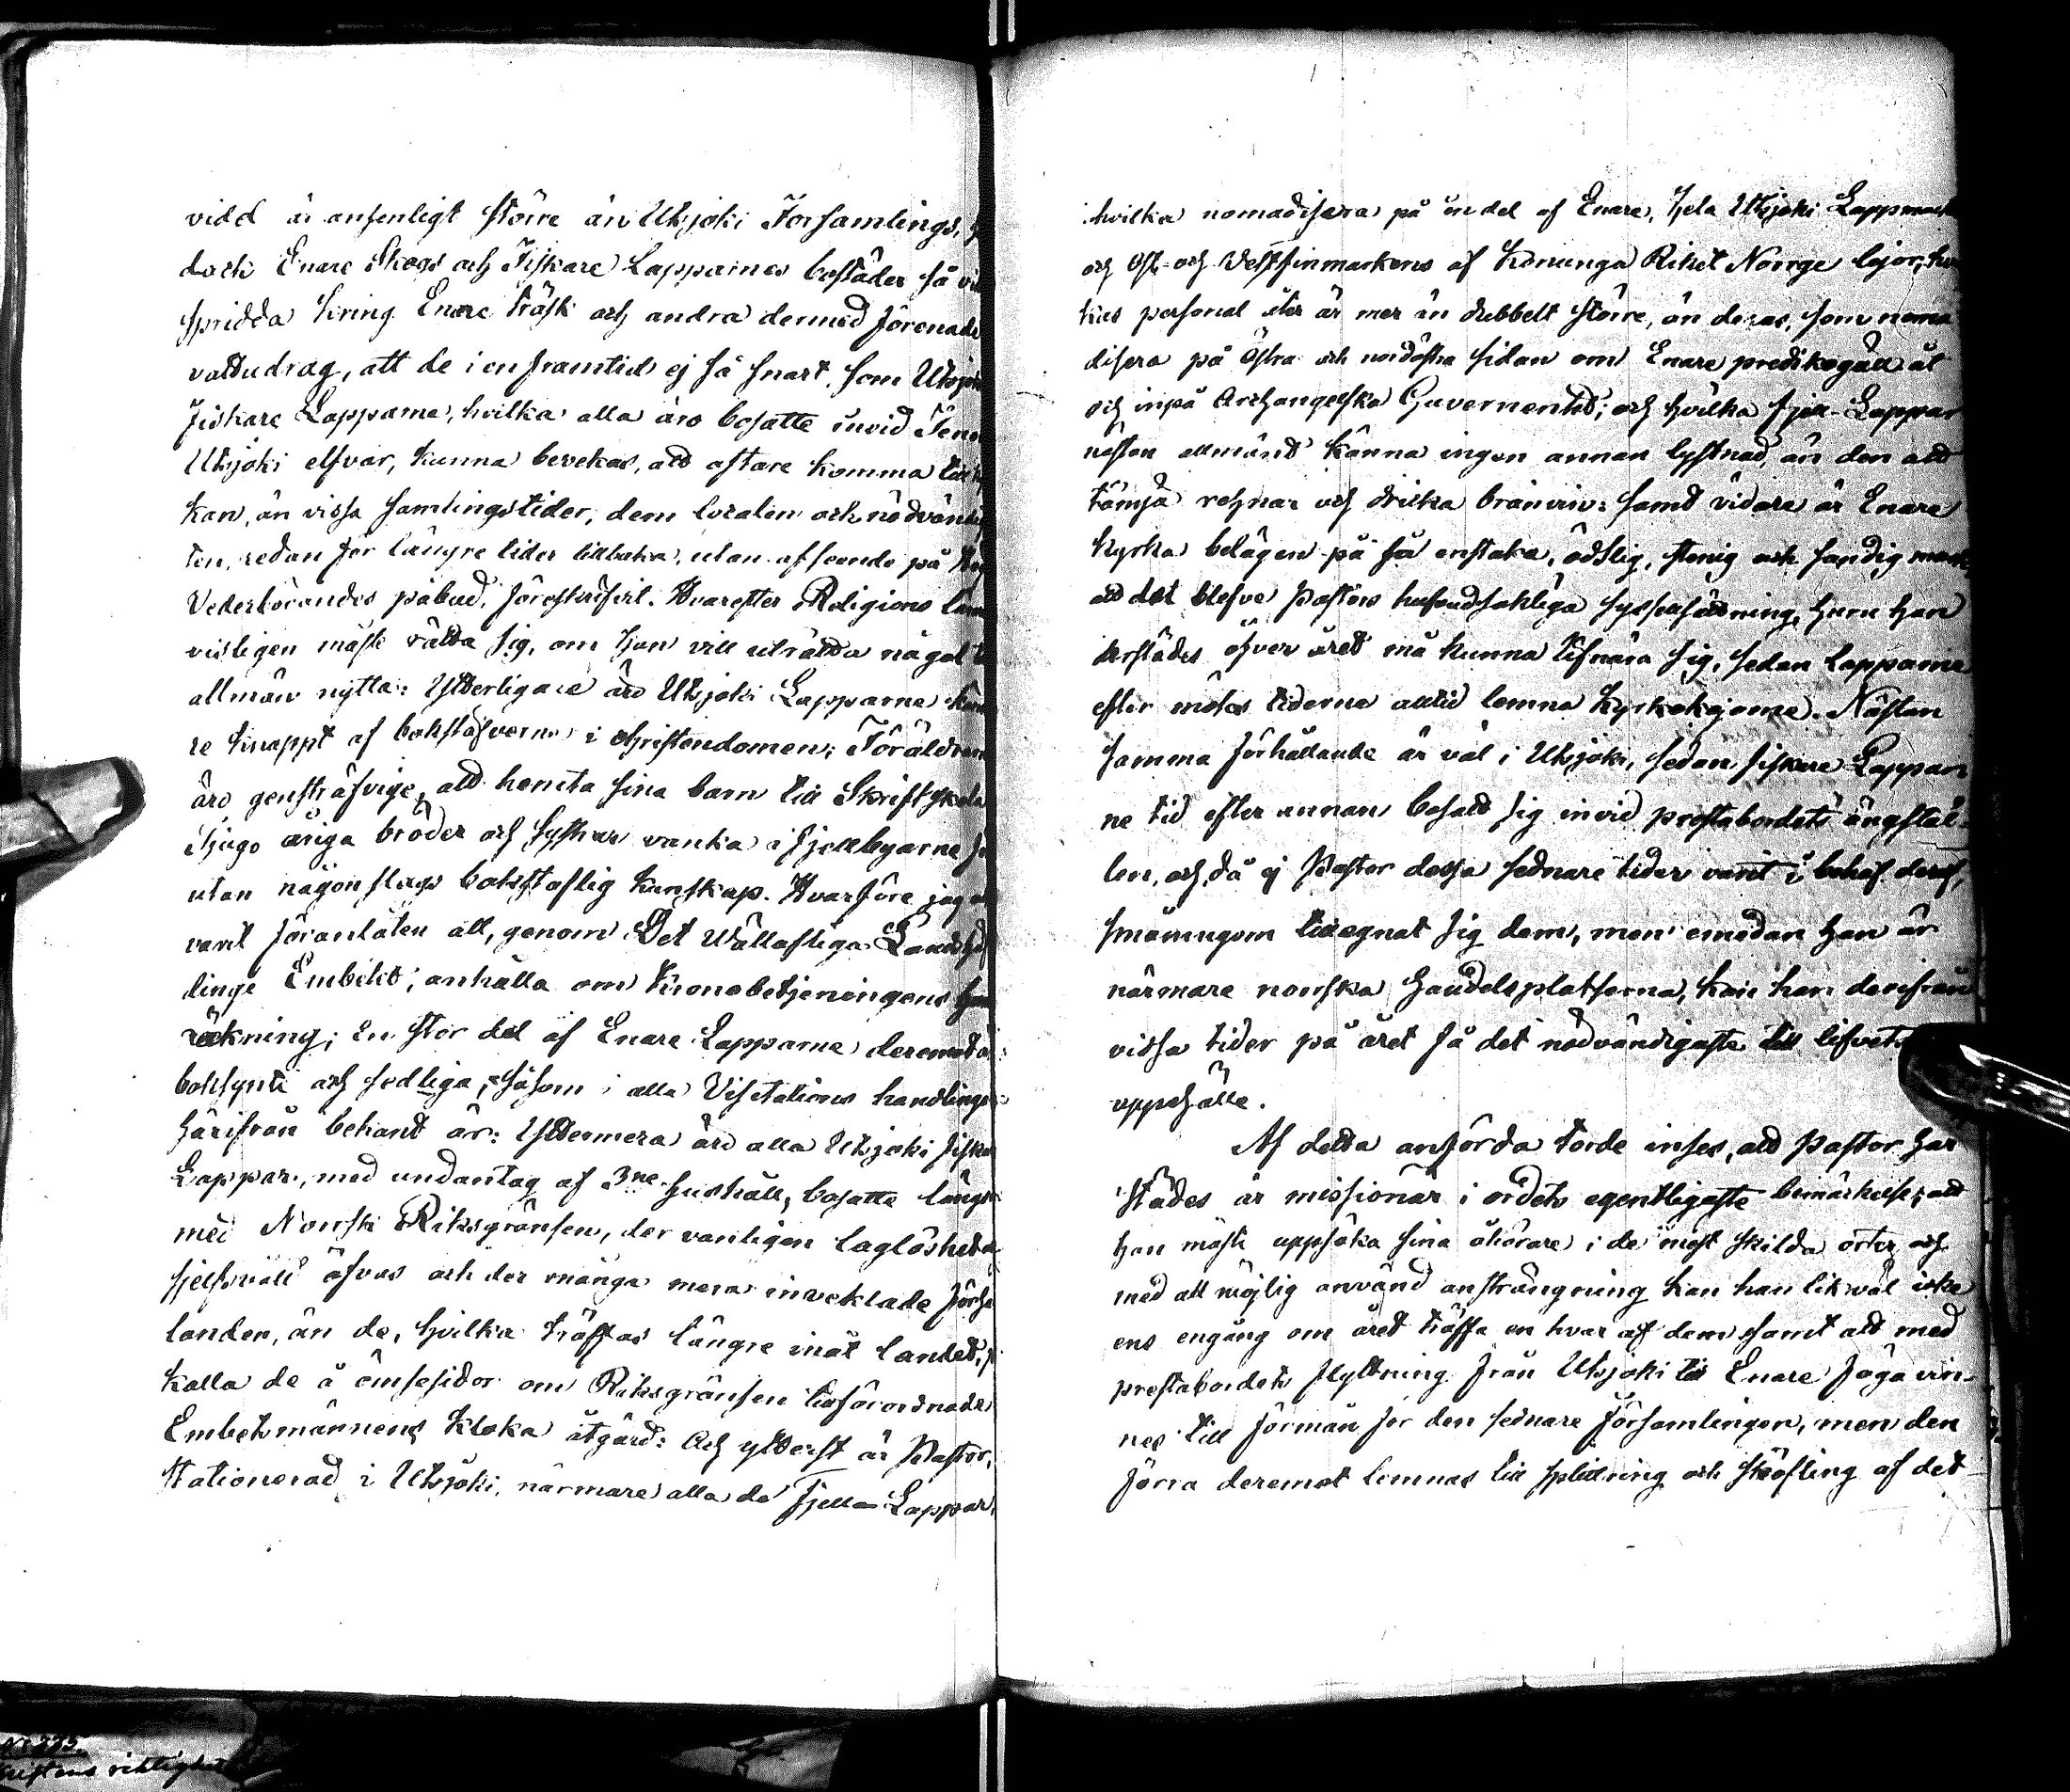 vidd är ansenligt större än Utsjoki Församlings,
dock Enare Skogs och Fiskare Lapparnes bostäder så vi
spridda kring Enare Träsk och andra dermed förenade
vattudrag, att de i en framtid ej så snart, som Utsjoki
Fiskare Lapparne, hvilka alla äro bosatte invid Teno
Utsjoki elfvar, kunna bevekas, att oftare komma till
kan, än vissa samlingstider, dem localen och nödvändig
ten, redan för längre tider tillbaka, utan afseende på
Vederbörandes påbud, föreskrifvit. Hvarefter Religions
visligen måste rätta sig, om han vill uträtta något
allmän nytta: Ytterligare äro Utsjoki Lapparne
re knappt af bokstäfverne i Christendomen; Föräldrarne
äro gensträfvige, att hemta sina barn till Skriftskola
tjugo åriga bröder och systrar vanka i fjellbyarne
utan någon slags bokstaflig kunskap. Hvarföre jag
varit föranlåten att, genom Det Wällofliga Landshöf
dinge Embetet, anhålla om Kronobetjeningens hand
räckning; En stor del af Enare Lapparne deremot ä
boksynte och sedliga, såsom i alla Visitations handlingar
härifrån bekant är: Yttermera äro alla Utsjoki Fiskare
Lappar, med undantag af 3ne hushåll, bosatte längs
med Norska Riksgränsen, der vanligen laglöshet
sjelfsvåld öfvas och der många mera invecklade förhål
landen, än de, hvilka träffas längre inåt landet,
kalla de å ömse sidor om Riksgränsen tillförordnade
Embetsmännens kloka åtgärd: Och ytterst är Pastor,
stationerad i Utsjoki, närmare alla de Fjell-Lappar,
hvilka nomadisera på en del af Enare, hela Utsjoki Lappmark
och Ost- och Westfinmarkens af Konunga Riket Norrge bejor, hvil
kas personal åter är mer än dubbelt större, än deras, som noma
disera på östra och nordöstra sidan om Enare predikogäll åt
och inpå Archangelska Guvernentet; och hvilka fjell-Lappar
nästan allmänt känna ingen annan lystnad, än den att
tämja rehnar och dricka bränvin: samt vidare är Enare
kyrka belägen på så enstaka, ödslig, stenig och sandig mark,
att det blefve Pastors hufvudsakliga sysselsättning, huru han
derstädes öfver året må kunna lifnära sig, sedan Lapparne
efter mötes tiderna alltid lemna Kyrkokojorne. Nästan
samma förhållande är väl i Utsjoki, sedan fiskare Lappar
ne tid efter annan bosatt sig invid prestabordets ängstäl-
len, och, då ej Pastor dessa sednare tider varit i behof deraf,
småningom tillegnat sig dem, men emedan han är
närmare norrska handelsplatserna, kan han derifrån
vissa tider på året få det nödvändigaste till lifvets
uppehälle.
Af detta anförda torde inses, att Pastor här
städes är missionär i ordets egentligaste bemärkelse, att
han måste uppsöka sina åhörare i de mest skilda orter, och
med all möjlig använd ansträngning kan han likväl icke
ens engång om året träffa en hvar af dem samt att med
prestabordets flyttning från Utsjoki till Enare föga vin-
nes till förmån för den sednare församlingen, men den
förra deremot lemnas till splittring och sköfling af det